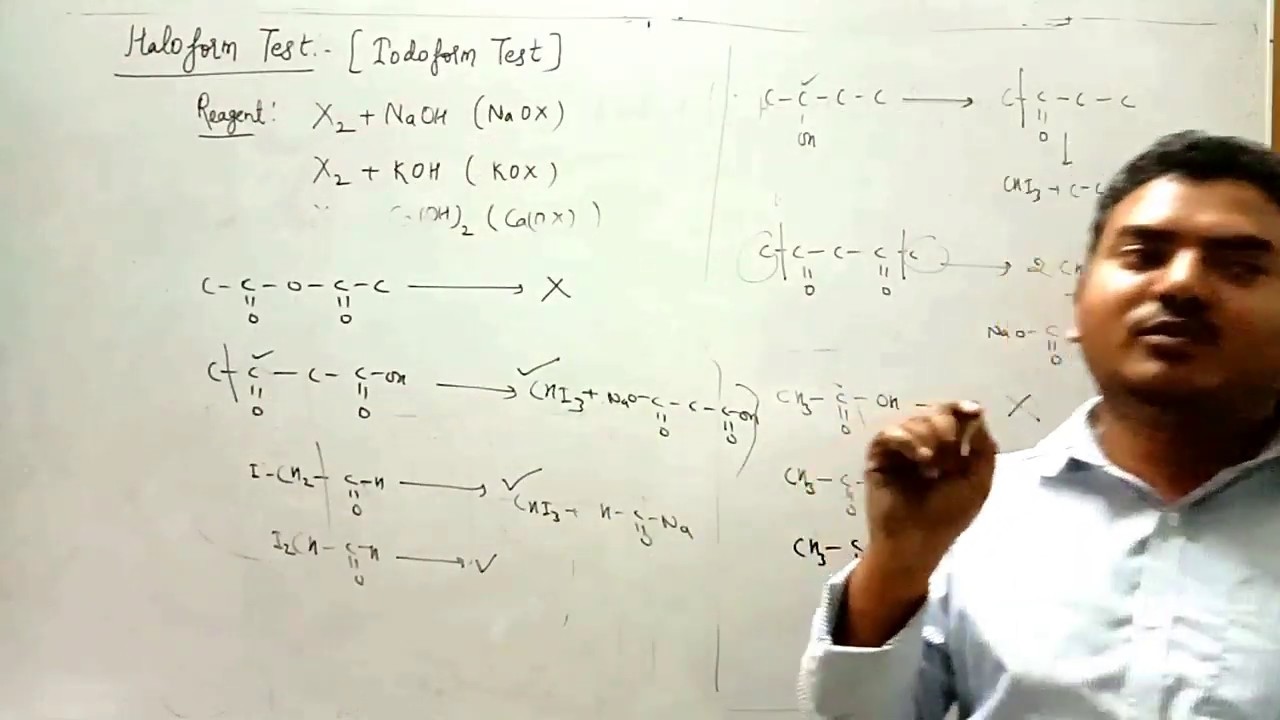 Haloform Test:- [Iodoform Test]
Reagent: X2 + NaOH (NaOX)
X2 + KOH (KOX)
(OH)2 (Ca(OX) )
C - C - O - C - C → X
O O
C - C - C - C - OH → ✓ CHI3 + NaO - C - C - C - OH
O O O O
I - CH2 - C - H → ✓ CHI3 + H - C - Na
O O
I2CH - C - H → ✓
O
C - C - C - C → C - C - C - C
OH O
CHI3 + C - C
C - C - C - C - C → 2 CH
O O
NaO - C
O
CH3 - C - OH X
O
CH3 - C -
O
CH3 - C